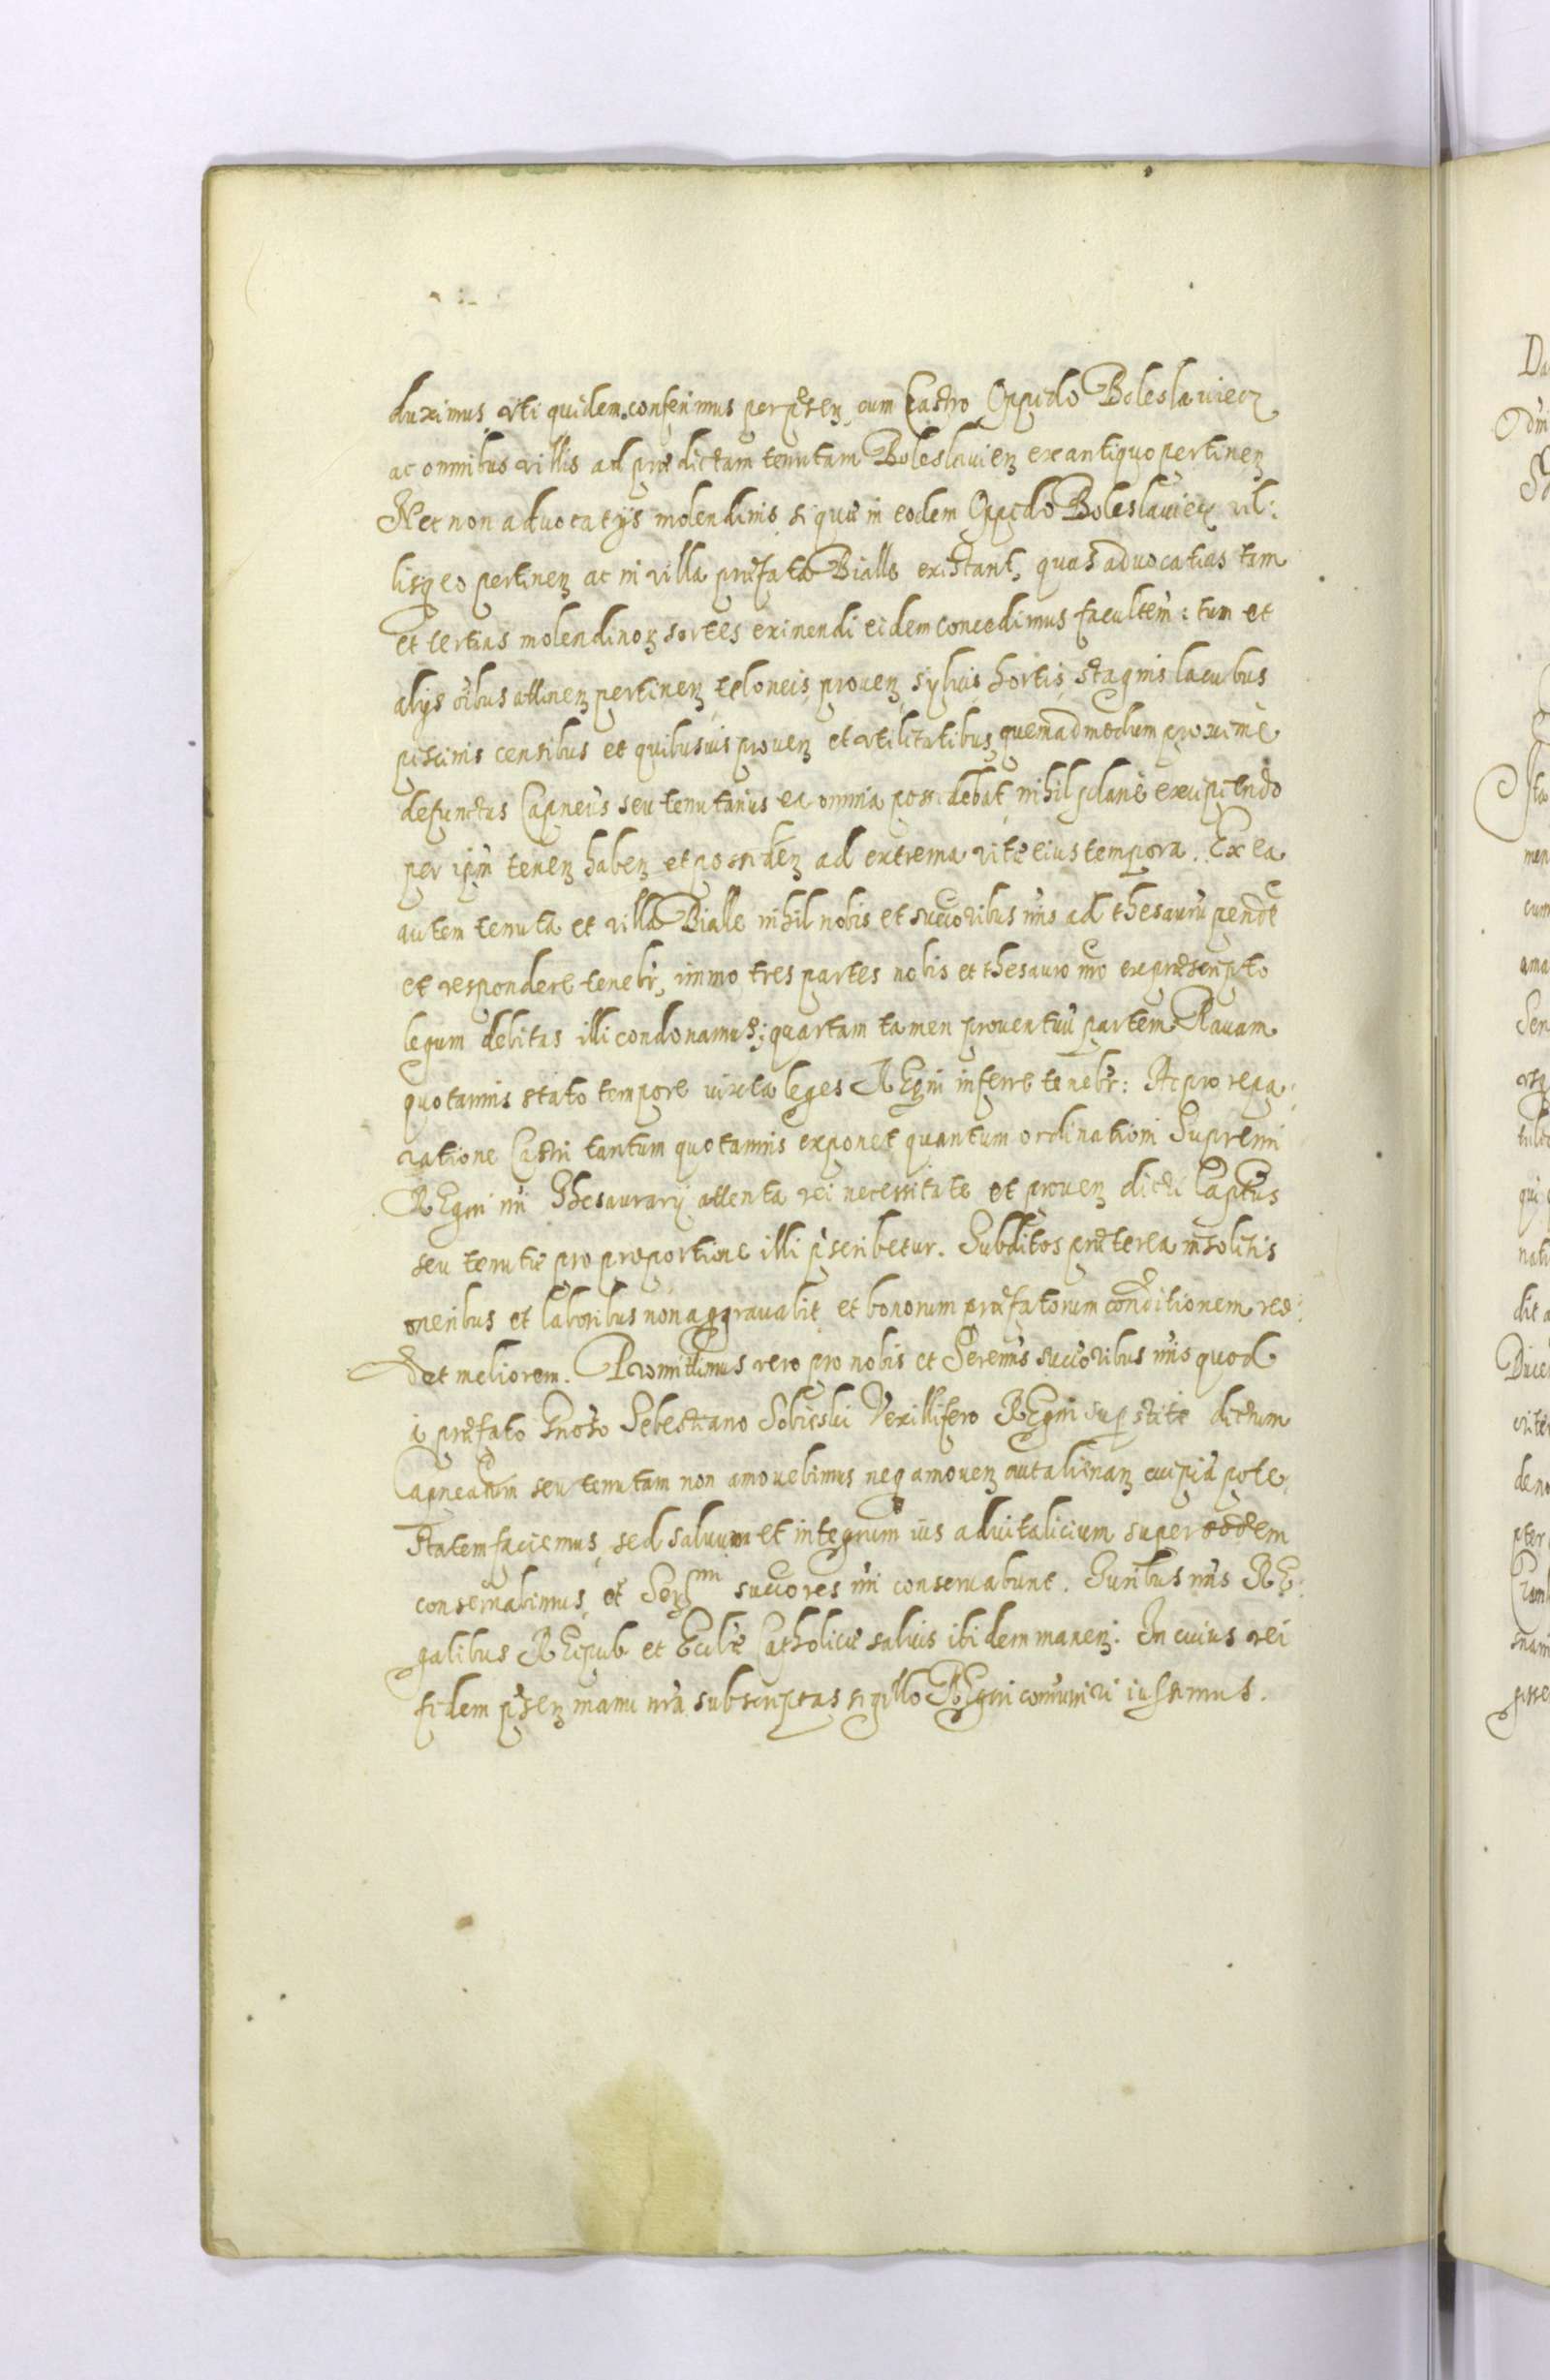 duximus, uti quidem conferimus per pṅsen cum Castro Oppido Boleslawiecz
ac omnibus villis ad prædictam tenutam Boleslauien ex antiquo pertinen
Nec non advocatijs molendinis si quæ in eodem Oppido Boleslawiecz vil:
lisq̧ eo pertinen ac in villa præfata Biale existant, quas advocatias tam
et tertias molendinoꝝ sortes eximendi eidem concedimus facultem̃: tum et
alijs oĩbus attinen pertinen teloneis, prouen, syluis, hortis, stagnis lacubus
piscinis censibus et quibusuis prouen et utilitatibus, quemadmodum proximè
defunctus Capneũs seu tenutarius ea omnia possidebat, nihil planè excipiendo
per ipm̃ tenen haben et possiden ad extrema vitæ eius tempora. Ex ea
autem tenuta et villa Biale nihil nobis et succoribus nr̃is ad thesaurũ pendẽt
et respondere tenebr̃, immo tres partes nobis et thesauro nr̃o ex præscripto
legum debitas illi condonamus; quartam tamen prouentuũ partem Rauam
quotannis stato tempore iuxta leges REgni inferre tenebr̃: Ac pro repa:
ratione Castri tantum quotannis exponet quantum ordinatioñi Supremi
REgni nr̃i Thesaurarij attenta rei necessitate et prouen dicti Captũs
seu tenutæ pro proportione illi p̃scribetur. Subditos præterea insolitis
oneribus et laboribus non aggrauabit et bonorum præfatorum conditionem red:
det meliorem. Promittimus vero pro nobis et Serenis̃ succoribus nr̃is quod
à præfato Gnoso Sebestiano Sobieski Vexillifero REgni superstite dictum
Capneatum seu tenutam non amouebimus neq̧ amouen aut alienan cuipiã pote
statem faciemus, sed saluum et integrum ius aduitalicium super eodem
conseruabimus, et Serᵐⁱ succores nr̃i conseruabunt. Iuribus nr̃is RE:
galibus REipub et Eccliæ Catholicæ saluis ibidem manen. In cuius rei
fidem p̃sen manu nr̃a subscriptas sigillo REgni com̃uniri iussimus.